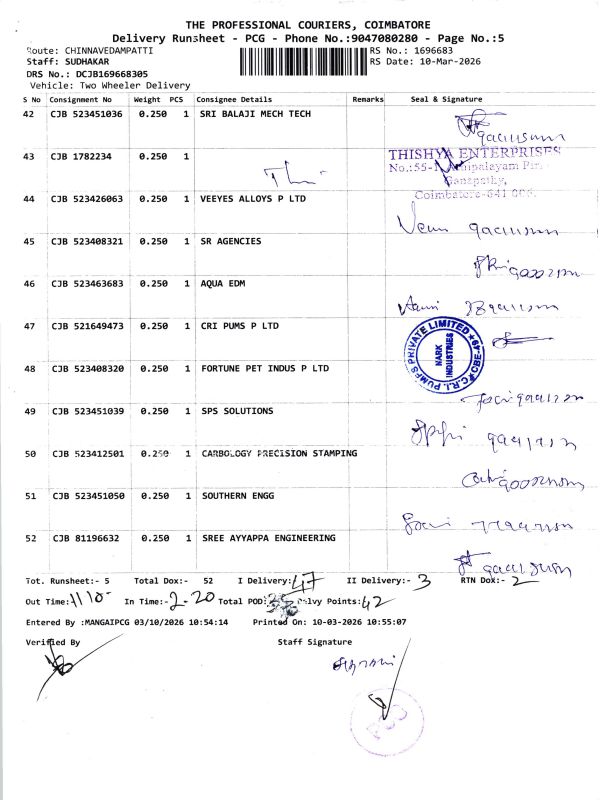 THE PROFESSIONAL COURIERS, COIMBATORE
Delivery Runsheet - PCG - Phone No.:9047080280 - Page No.:5
Route: CHINNAVEDAMPATTI RS No.: 1696683
Staff: SUDHAKAR RS Date: 10-Mar-2026
DRS No.: DCJB169668305
Vehicle: Two Wheeler Delivery
S No Consignment No Weight PCS Consignee Details Remarks Seal & Signature
42 CJB 523451036 0.250 1 SRI BALAJI MECH TECH
43 CJB 1782234 0.250 1
THISHYA ENTERPRISES
Ganapathy,
Coimbatore-641 006.
44 CJB 523426063 0.250 1 VEEYES ALLOYS P LTD
45 CJB 523408321 0.250 1 SR AGENCIES
46 CJB 523463683 0.250 1 AQUA EDM
47 CJB 521649473 0.250 1 CRI PUMS P LTD
C.R.I. PUMPS PRIVATE LIMITED CBE-49
NARK INDUSTRIES
48 CJB 523408320 0.250 1 FORTUNE PET INDUS P LTD
49 CJB 523451039 0.250 1 SPS SOLUTIONS
50 CJB 523412501 0.250 1 CARBOLOGY PRECISION STAMPING
51 CJB 523451050 0.250 1 SOUTHERN ENGG
52 CJB 81196632 0.250 1 SREE AYYAPPA ENGINEERING
Tot. Runsheet:- 5 Total Dox:- 52 I Delivery: 47 II Delivery:- 3 RTN Dox:- 2
Out Time: 1110 In Time:- 2-20 Total POD: Delvy Points: 42
Entered By :MANGAIPCG 03/10/2026 10:54:14 Printed On: 10-03-2026 10:55:07
Verified By Staff Signature